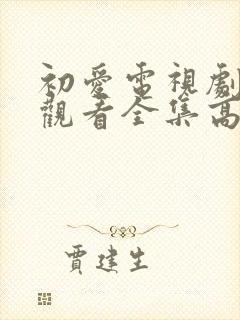 初愛電視劇
觀看全集高
賈建生